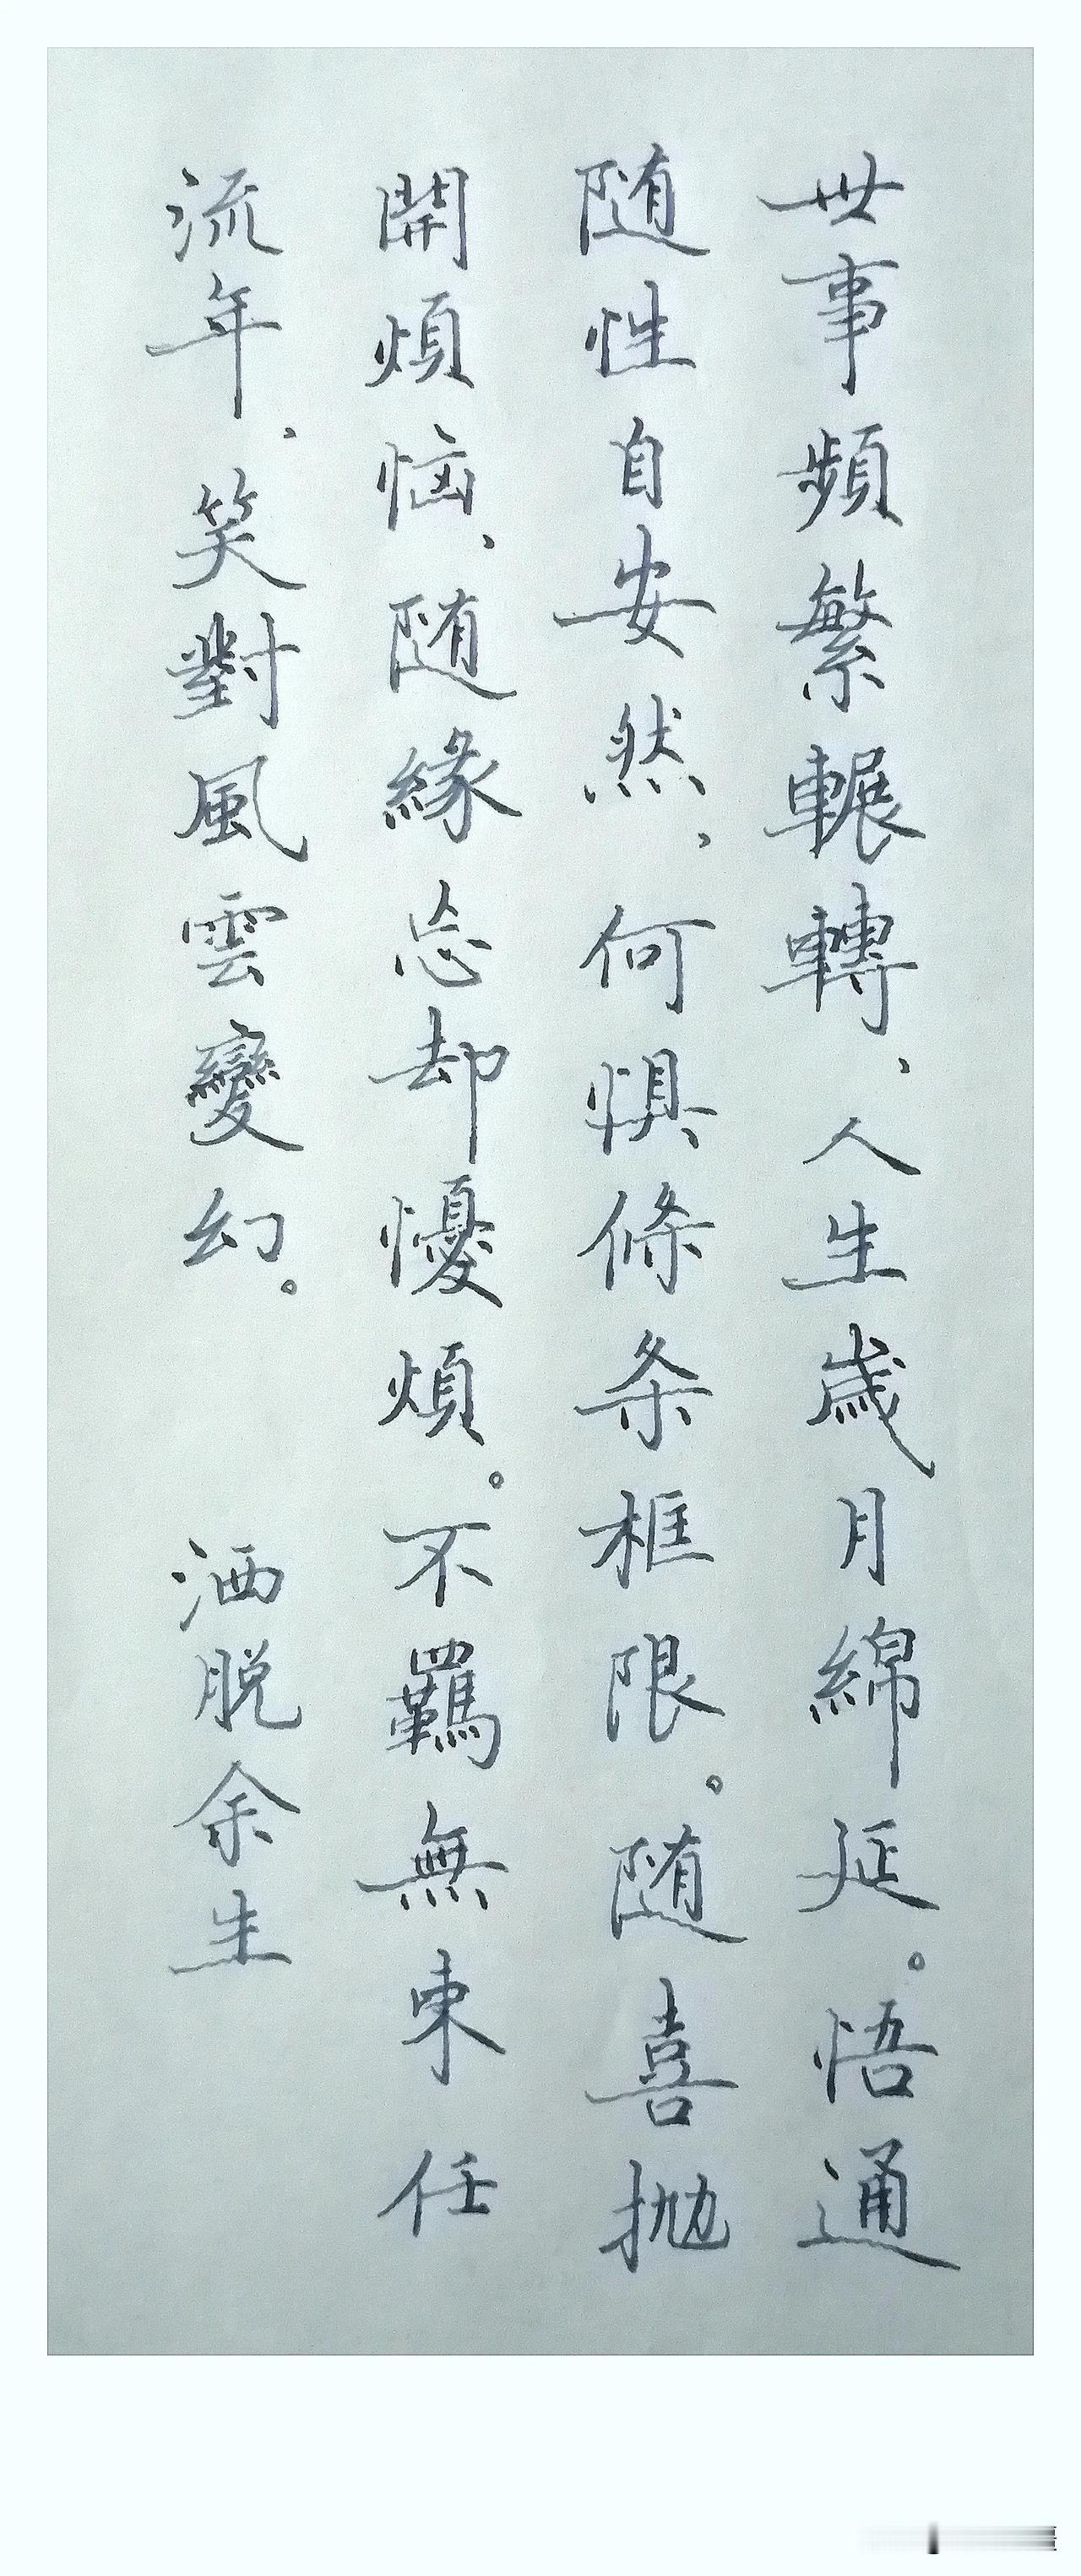 世事頻繁輾轉、人生歲月綿延。悟通
随性自安然、何惧條条框限。随喜抛
開煩恼、随緣忘却懮煩。不羈無束任
流年、笑對風雲變幻。 洒脱余生